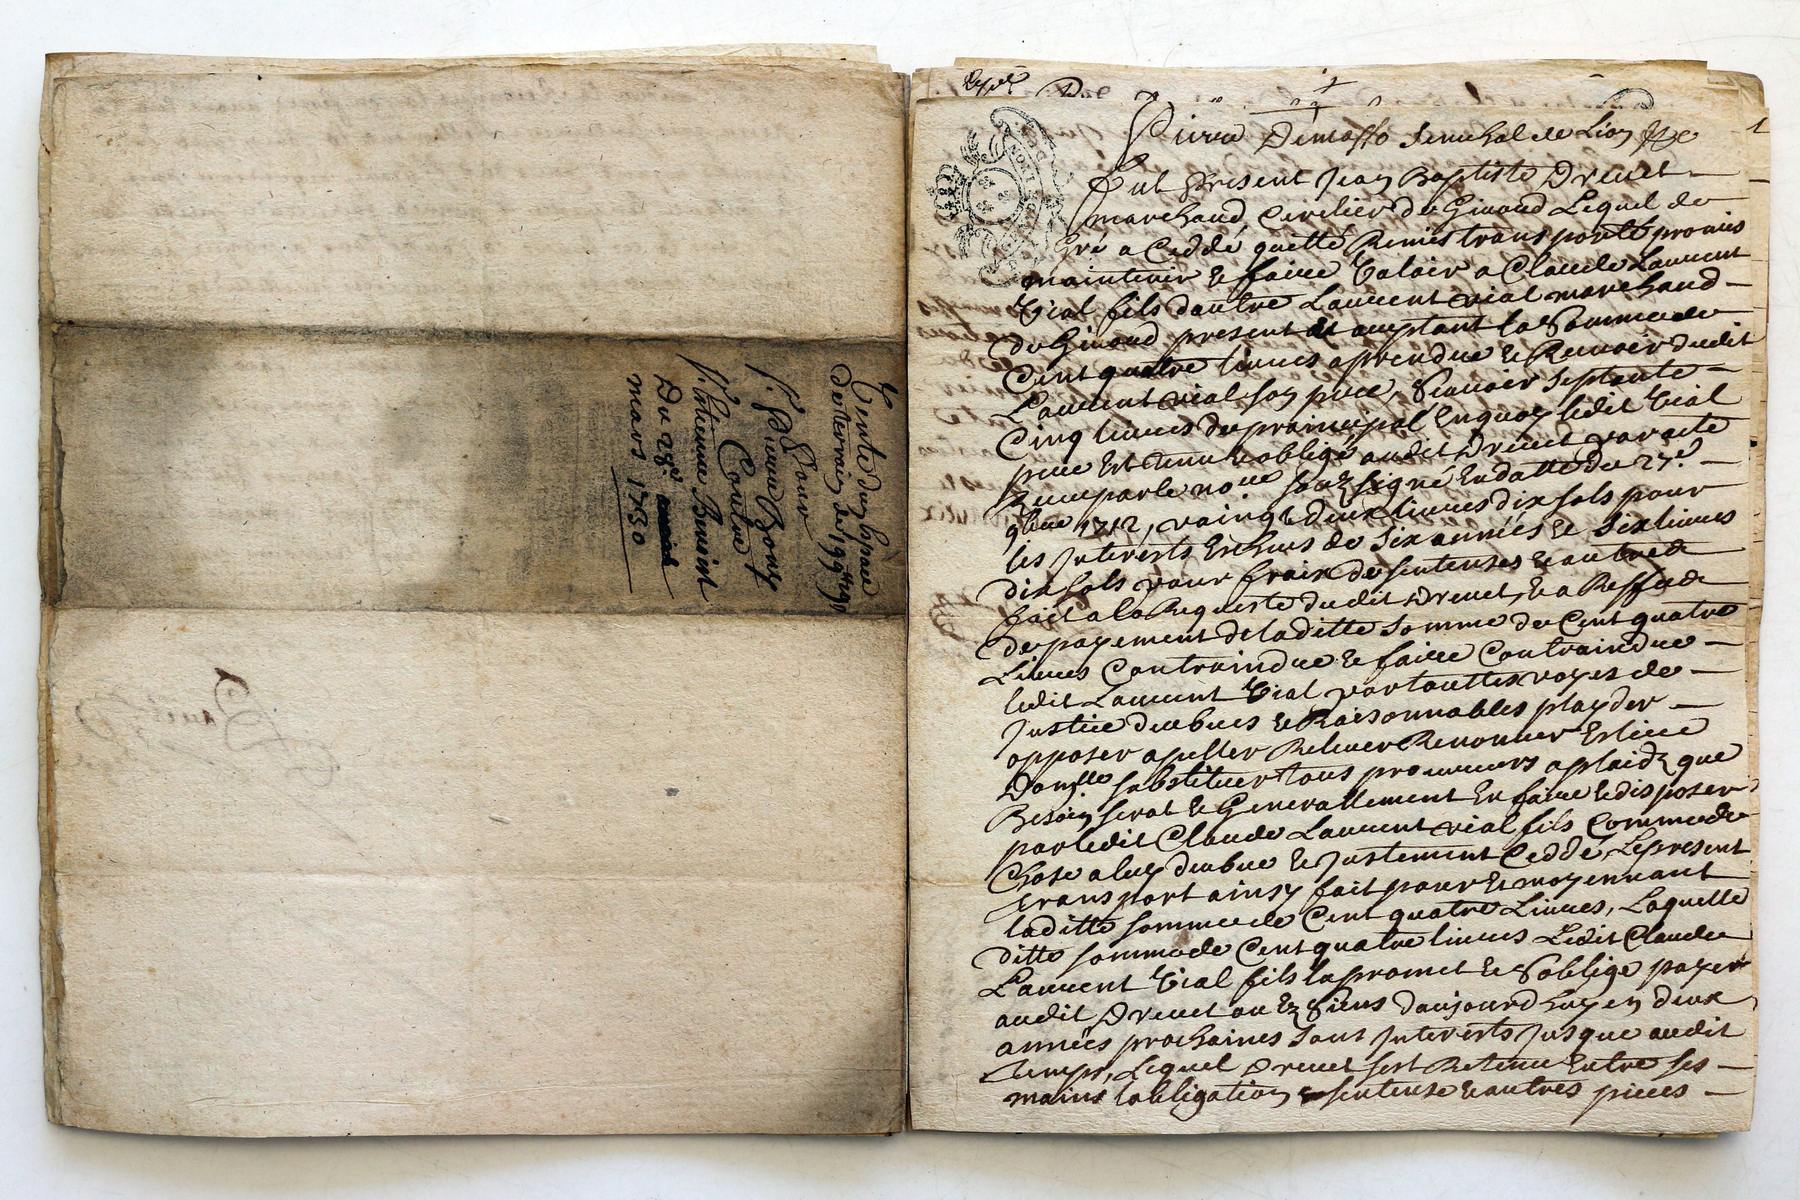 Vente du place
de terrain de 199 lt 19
Pour
Sr. Pierre Bony
Contre
Sr. Antienne Benoist
Du 28e
mars 1730
Pierre Demasso senechal de Lion &c
Fut present Jean Baptiste Drevet
marchand Cirelier de Givord Lequel de
Gré a Ceddé quetté Remis transporté promis
maintenir & faire Valoir a Claude Laurent
Vial fils dautre Laurent vial marchand
de Givord present & acceptant la Somme de
Cent quatre livres a prendre & Recevoir dudit
Laurent vial son pere, Scavoir Septante
Cinq livres de principal Enquoy ledit Vial
pere Est tenu & obligé audit Drevet par acte
Receu par le nore. souzsigné En datte du 27e.
9bre 1712, vaingt deux livres dix sols pour
les Interests Echus de Six années & Six livres
dix sols pour fraix de sentenses & autre
fait a la Requeste dudit Drevet, & a Reffus de
de payement de laditte somme de Cent quatre
Livres Contraindre & faire Contraindre
ledit Laurent Vial par touttes voyes de
Justice deubues & Raisonnables playder
opposer apeller Relever Renoncer Eslire
Domlle substituer tous procureurs a plaidz que
Besoin serat & Generallement En faire & disposer
par ledit Claude Laurent vial fils Comme de
Chose a luy deubue & Justement Ceddé, Le present
transport ainsy fait pour & moyennant
laditte somme de Cent quatre Livres, Laquelle
ditte somme de Cent quatre livres Ledit Claude
Laurent Vial fils la promet & S'oblige payer
audit Drevet ou Ez Siens daujourdhuy en deux
années prochaines sans Interests Jusque audit
temps, Lequel Drevet sest Retenu Entre ses
mains lobligation sentense & autres pieces